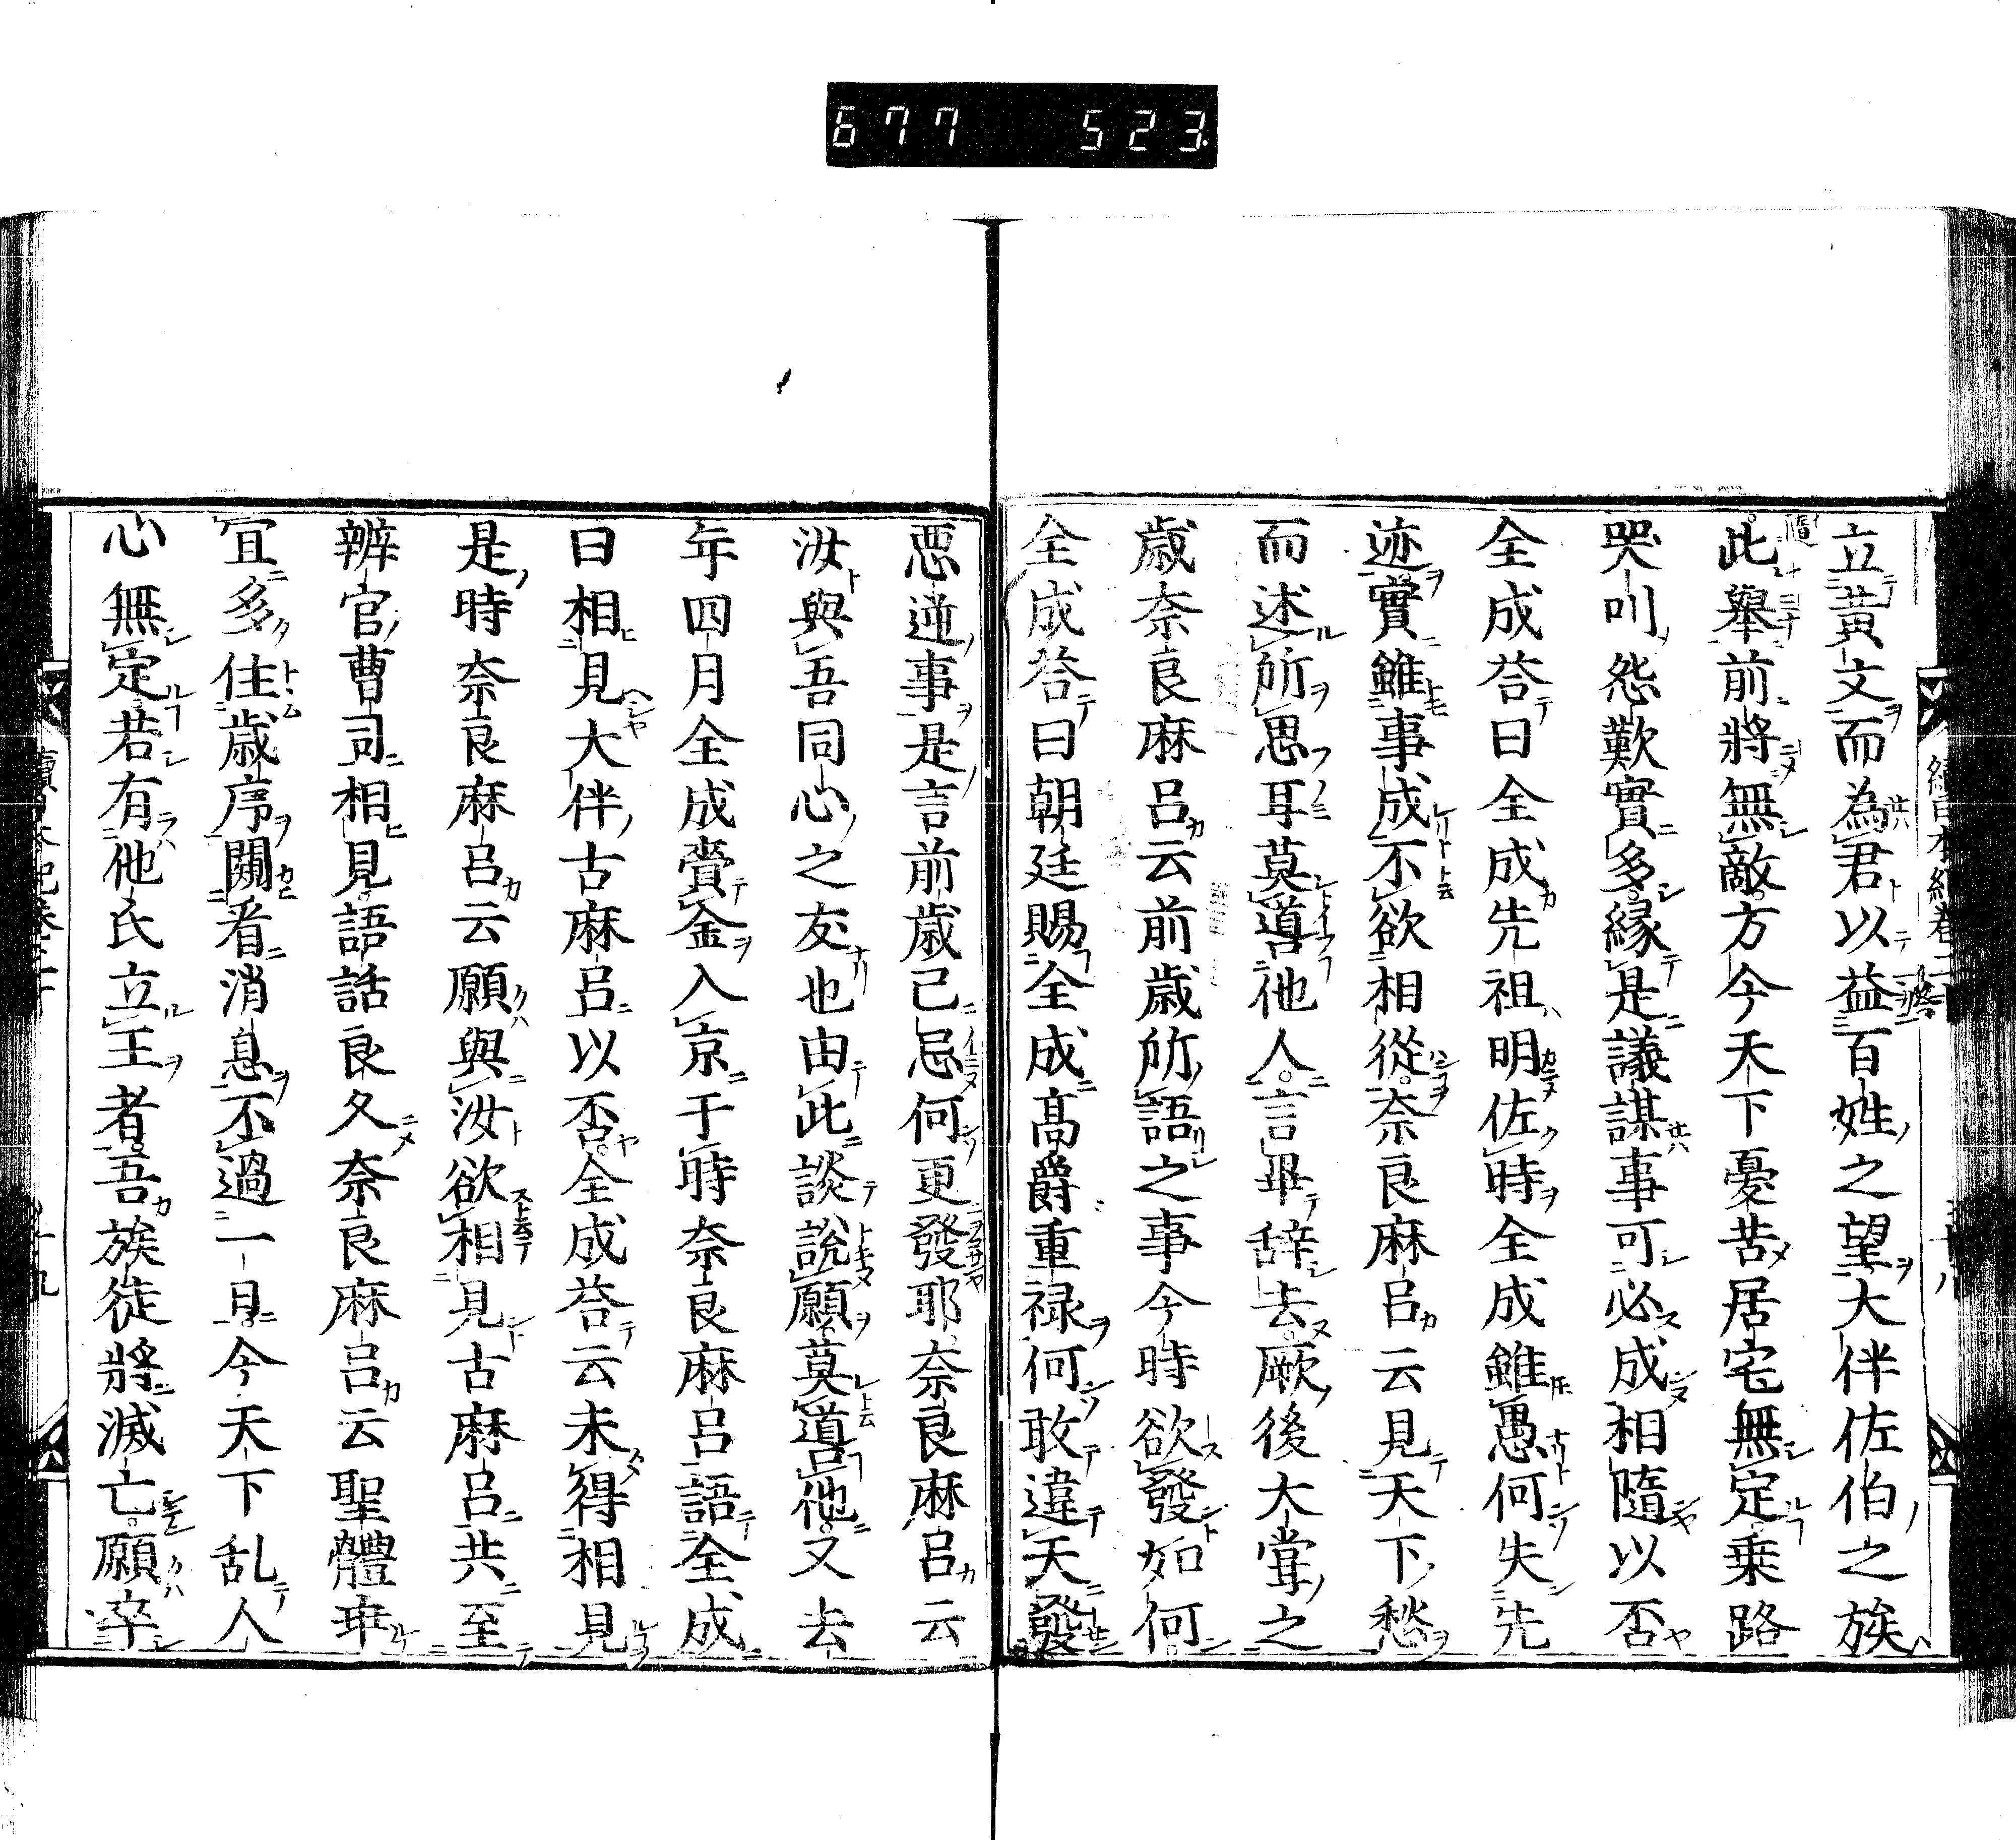 677 523
立黃文而為君以益百姓之望大伴佐伯之族
此舉前將無敵方今天下憂苦居宅無定乗路
哭叫怨歎實多緣是議謀事可必成相隨以否
全成荅曰全成先祖明佐時全成雖愚何失先
迹實雖事成不欲相從奈良麻呂云見天下愁
而述所思耳莫噵他人言畢辞去厥後大甞之
歳奈良麻呂云前歳所語之事今時欲發如何
全成荅曰朝廷賜全成髙爵重禄何敢違天發
悪逆事是言前歳已忌何更發耶奈良麻呂云
汝與吾同心之友也由此談說願莫噵他又去
年四月全成賷金入京于時奈良麻呂語全成
曰相見大伴古麻呂以否全成荅云未得相見
是時奈良麻呂云願與汝欲相見古麻呂共至
辨官曹司相見語話良久奈良麻呂云聖體乖
冝多住歳序闕看消息不過一日今天下乱人
心無定若有他氏立王者吾族徒將滅亡願率